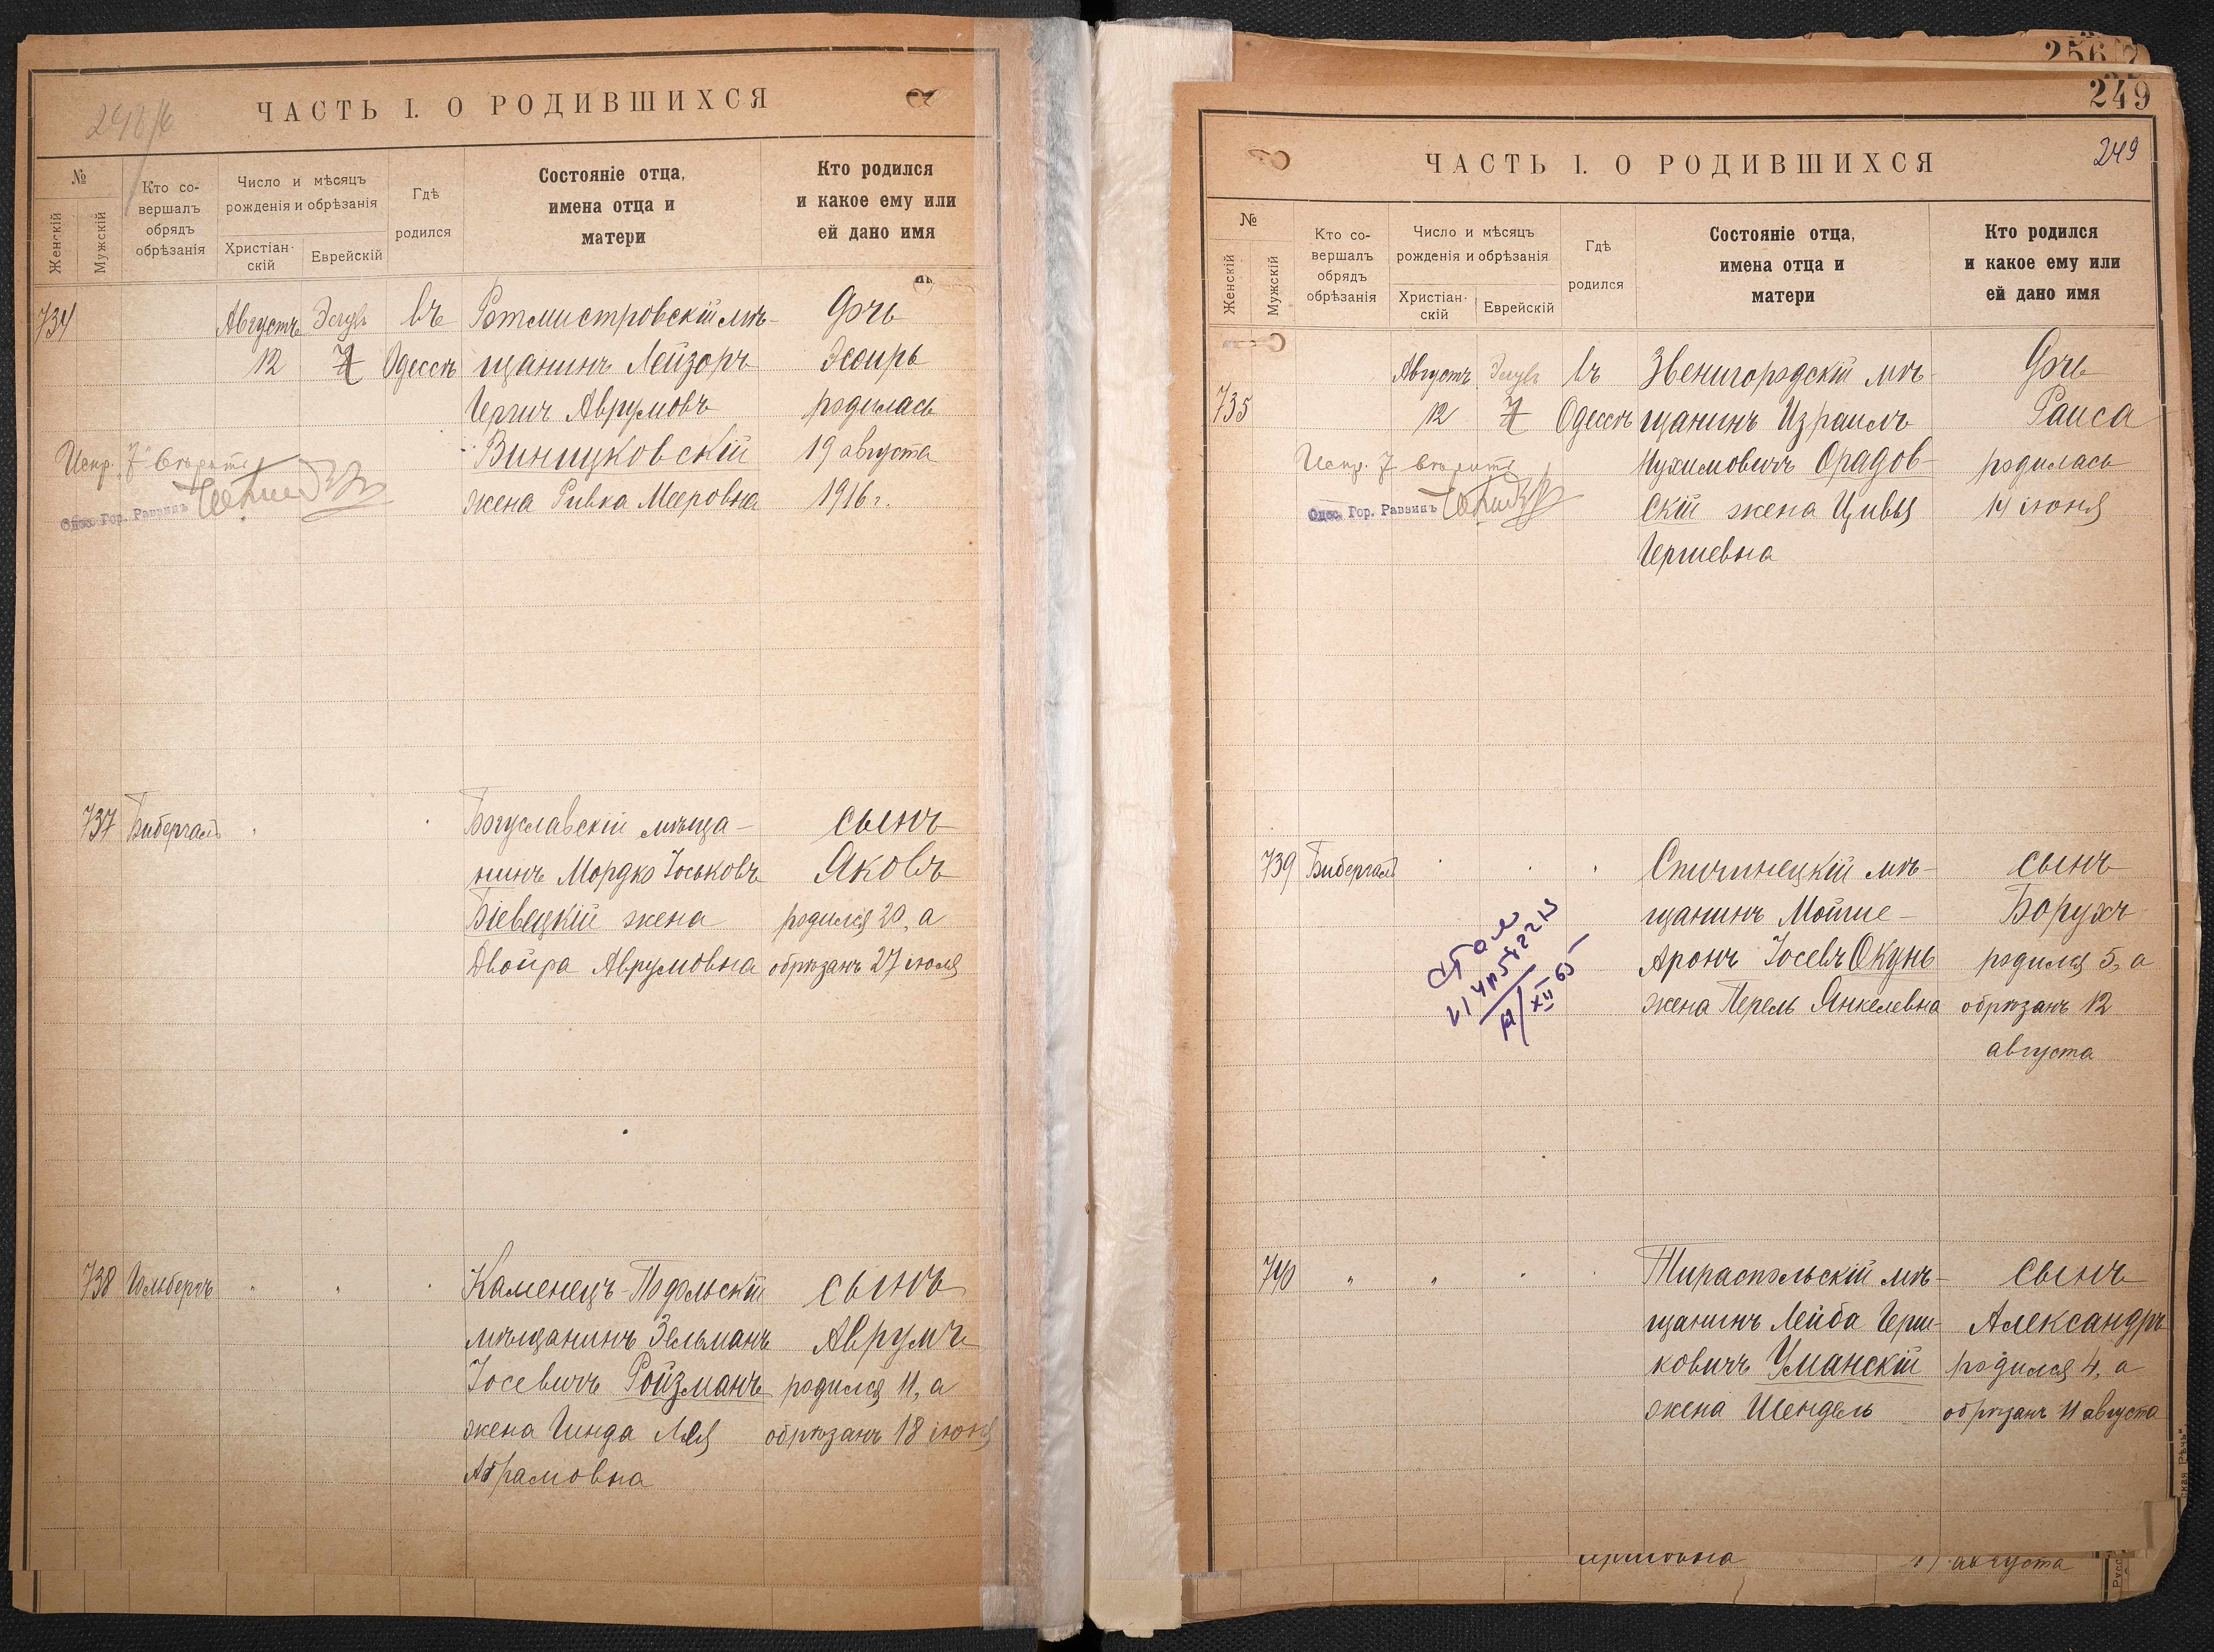 248/б
ЧАСТЬ I. О РОДИВШИХСЯ
№
Женскій
Мужскій
Кто со-
вершалъ
обрядъ
обрѣзанія
Число и мѣсяцъ
рожденія и обрѣзанія
Христіан-
скій
Еврейскій
Гдѣ
родился
Состояніе отца,
имена отца и
матери
Кто родился
и какое ему или
ей дано имя
734 Августъ Элулъ въ Ротмистровскій мѣ- Дочь
12 7 Одессѣ щанинъ Лейзоръ Эсѳирь
Гершъ Аврумовъ родилась
Винницковскій 19 августа
жена Ривка Мееровна 1916 г.
Испр. 7 вѣрить
Одес. Гор. Раввинъ
737 Бибергалъ Богуславскій мѣща- сынъ
нинъ Мордко Іоськовъ Яковъ
Біевецкій жена родился 20, а
Двойра Аврумовна обрѣзанъ 27 іюля
738 Гольдбергъ " " Каменецъ-Подольскій сынъ
мѣщанинъ Зельманъ Аврумъ
Іосевичъ Ройзманъ родился 11, а
жена Гинда Лея обрѣзанъ 18 іюня
Абрамовна
256
249
249
ЧАСТЬ I. О РОДИВШИХСЯ
№
Женскій
Мужскій
Кто со-
вершалъ
обрядъ
обрѣзанія
Число и мѣсяцъ
рожденія и обрѣзанія
Христіан-
скій
Еврейскій
Гдѣ
родился
Состояніе отца,
имена отца и
матери
Кто родился
и какое ему или
ей дано имя
Августъ Элулъ въ Звенигородскій мѣ- Дочь
735 12 7 Одессѣ щанинъ Израиль Раиса
Испр. 7 вѣрить Нухимовичъ Орадов- родилась
Одес. Гор. Раввинъ скій жена Цивья 14 іюня
Гершевна
739 Бибергалъ Спичинецкій мѣ- сынъ
щанинъ Мойше- Борухъ
Аронъ Іосевъ Окунь родился 5, а
жена Перель Янкелевна обрѣзанъ 12
августа
XII 65
740 " " Тираспольскій мѣ- сынъ
щанинъ Лейба Герш- Александръ
ковичъ Уманскій родился 4, а
жена Шендель обрѣзанъ 11 августа
августа